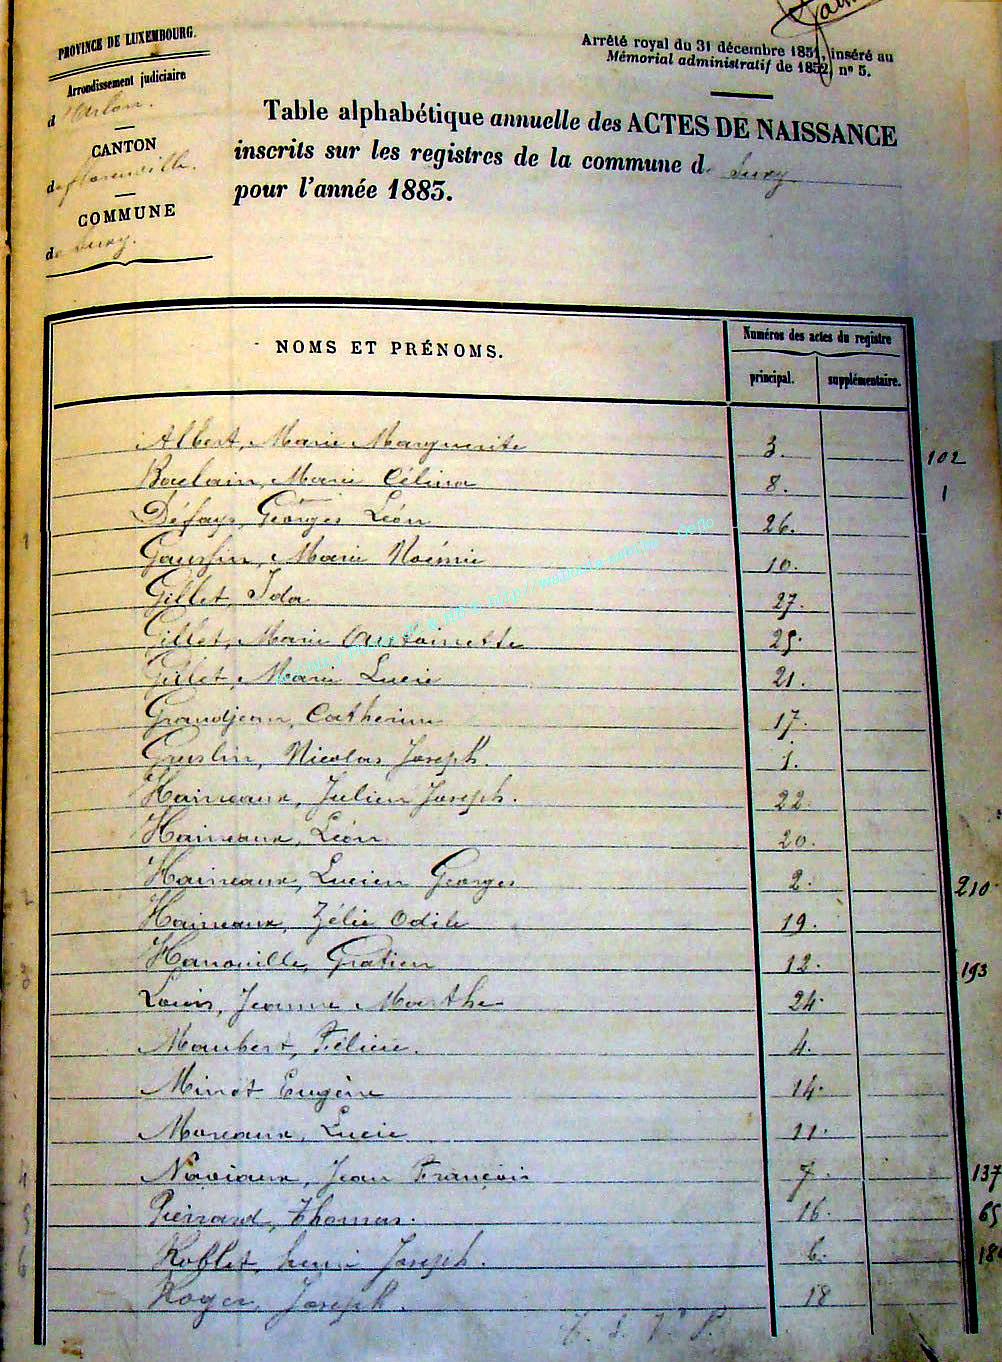 PROVINCE DE LUXEMBOURG.
Arrondissement judiciaire
d'Arlon.
CANTON
de Florenville.
COMMUNE
de Suxy.
Arrêté royal du 31 décembre 1851, inséré au
Mémorial administratif de 1852, nº 5.
Table alphabétique annuelle des ACTES DE NAISSANCE
inscrits sur les registres de la commune de Suxy
pour l'année 1883.
NOMS ET PRÉNOMS.
Numéros des actes du registre
principal. supplémentaire.
Albert, Marie Marguerite 3. 102
Baclain, Marie Célina 8. 1
Défays, Georges Léon 26.
1 Gauslin, Marie Noémie 10.
Gillet, Ida 27.
Gillet, Marie Antoinette 25.
Gillet, Marie Lucie 21.
Grandjean, Catherine 17.
Greslin, Nicolas Joseph. 1.
Haineaux, Julien Joseph. 22.
Haineaux, Léon 20.
Haineaux, Lucien Georges 2. 210
Haineaux, Zélie Odile 19.
3 Hanouille, Gratien 12. 193
Louis, Jeanne Marthe 24.
Maubert, Félicie. 4.
Minot Eugène 14.
Moreaux, Lucie 11.
4 Naviaux, Jean François 7. 137
5 Pierrard, Thomas. 16. 65
6 Roblet, Henri Joseph. 6.
Roger, Joseph. 18
T. S. V. P.